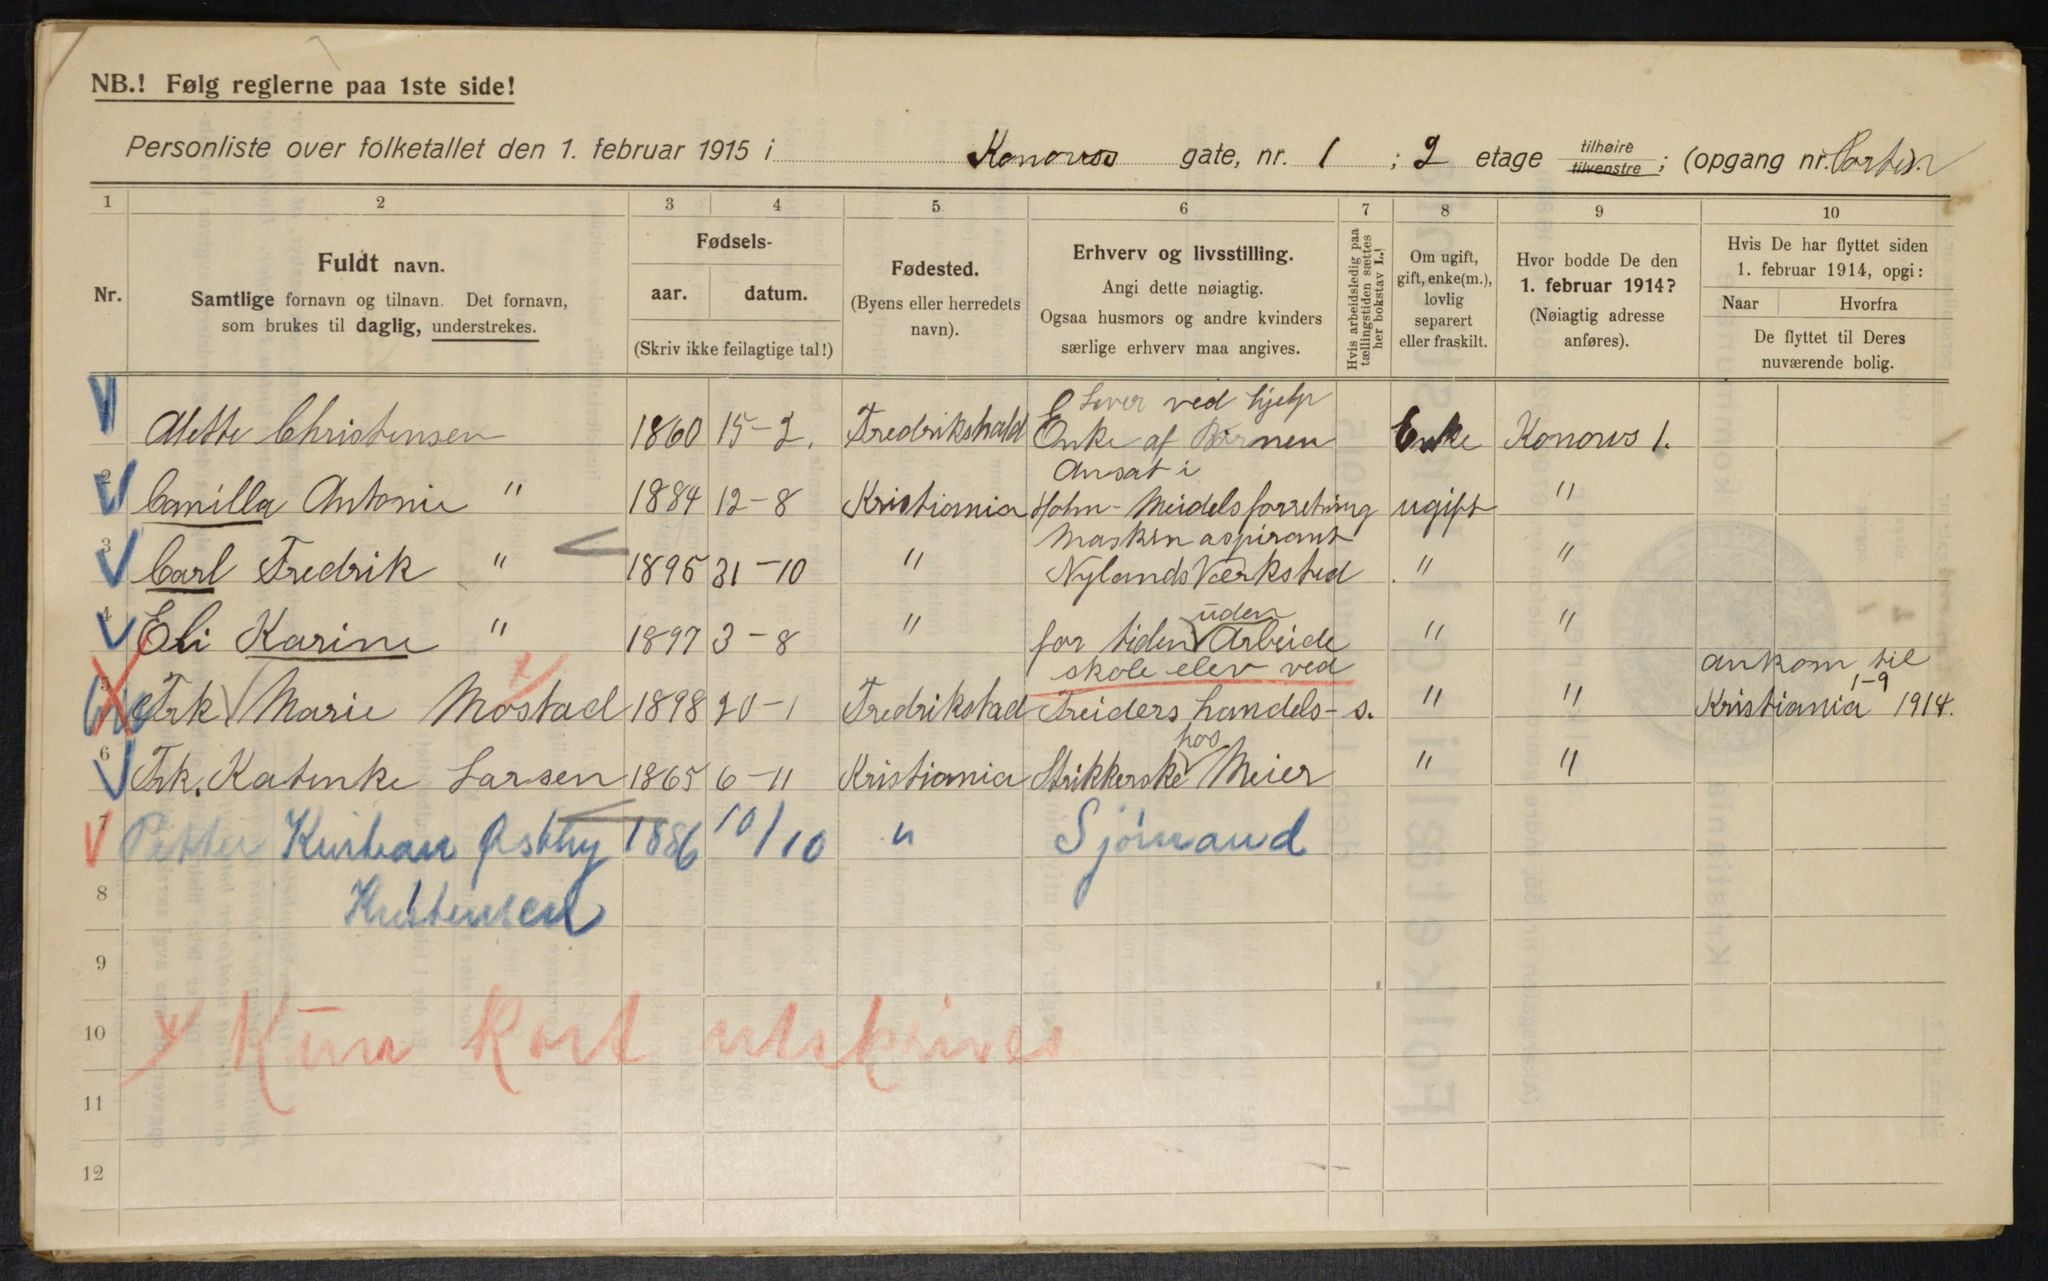 NB.! Følg reglerne paa 1ste side!
Personliste over folketallet den 1. februar 1915 i Konows gate, nr. 1 ; 2 etage tilhøire tilvenstre ; (opgang nr.
1 2 3 4 5 6 7 8 9 10
Nr.
Fuldt navn.
Samtlige fornavn og tilnavn. Det fornavn,
som brukes til daglig, understrekes.
Fødsels-
aar. datum.
(Skriv ikke feilagtige tal!)
Fødested.
(Byens eller herredets
navn).
Erhverv og livsstilling.
Angi dette nøiagtig.
Ogsaa husmors og andre kvinders
særlige erhverv maa angives.
Hvis arbeidsledig paa
tællingstiden sættes
her bokstav L.!
Om ugift,
gift, enke(m.),
lovlig
separert
eller fraskilt.
Hvor bodde De den
1. februar 1914?
(Nøiagtig adresse
anføres).
Hvis De har flyttet siden
1. februar 1914, opgi:
Naar Hvorfra
De flyttet til Deres
nuværende bolig.
Lever ved hjelp
Mette Christensen 1860 15-2. Fredrikshald Enke af Børnen Enke Konows 1.
Ansat i
2 Camilla Antonie " 1884 12-8 Kristiania Holm-Meidels forretning ugift "
Maskinaspirant
3 Carl Fredrik " 1895 31-10 " Nylands Værksted " "
uden
4 Eli Karine " 1897 3-8 " for tiden Arbeide " "
skole elev ved ankom til
5 Frk Marie Mostad 1898 20-1 Fredrikstad Treiders handels-s. " " Kristiania 1-9 1914.
hos
6 Frk. Katinke Larsen 1865 6-11 Kristiania Strikkerske Meier " "
7 Petter Kristian Østby 1886 10/10 " Sjømand
8 Kristensen
9
10 x Kun Kort utskrives
11
12